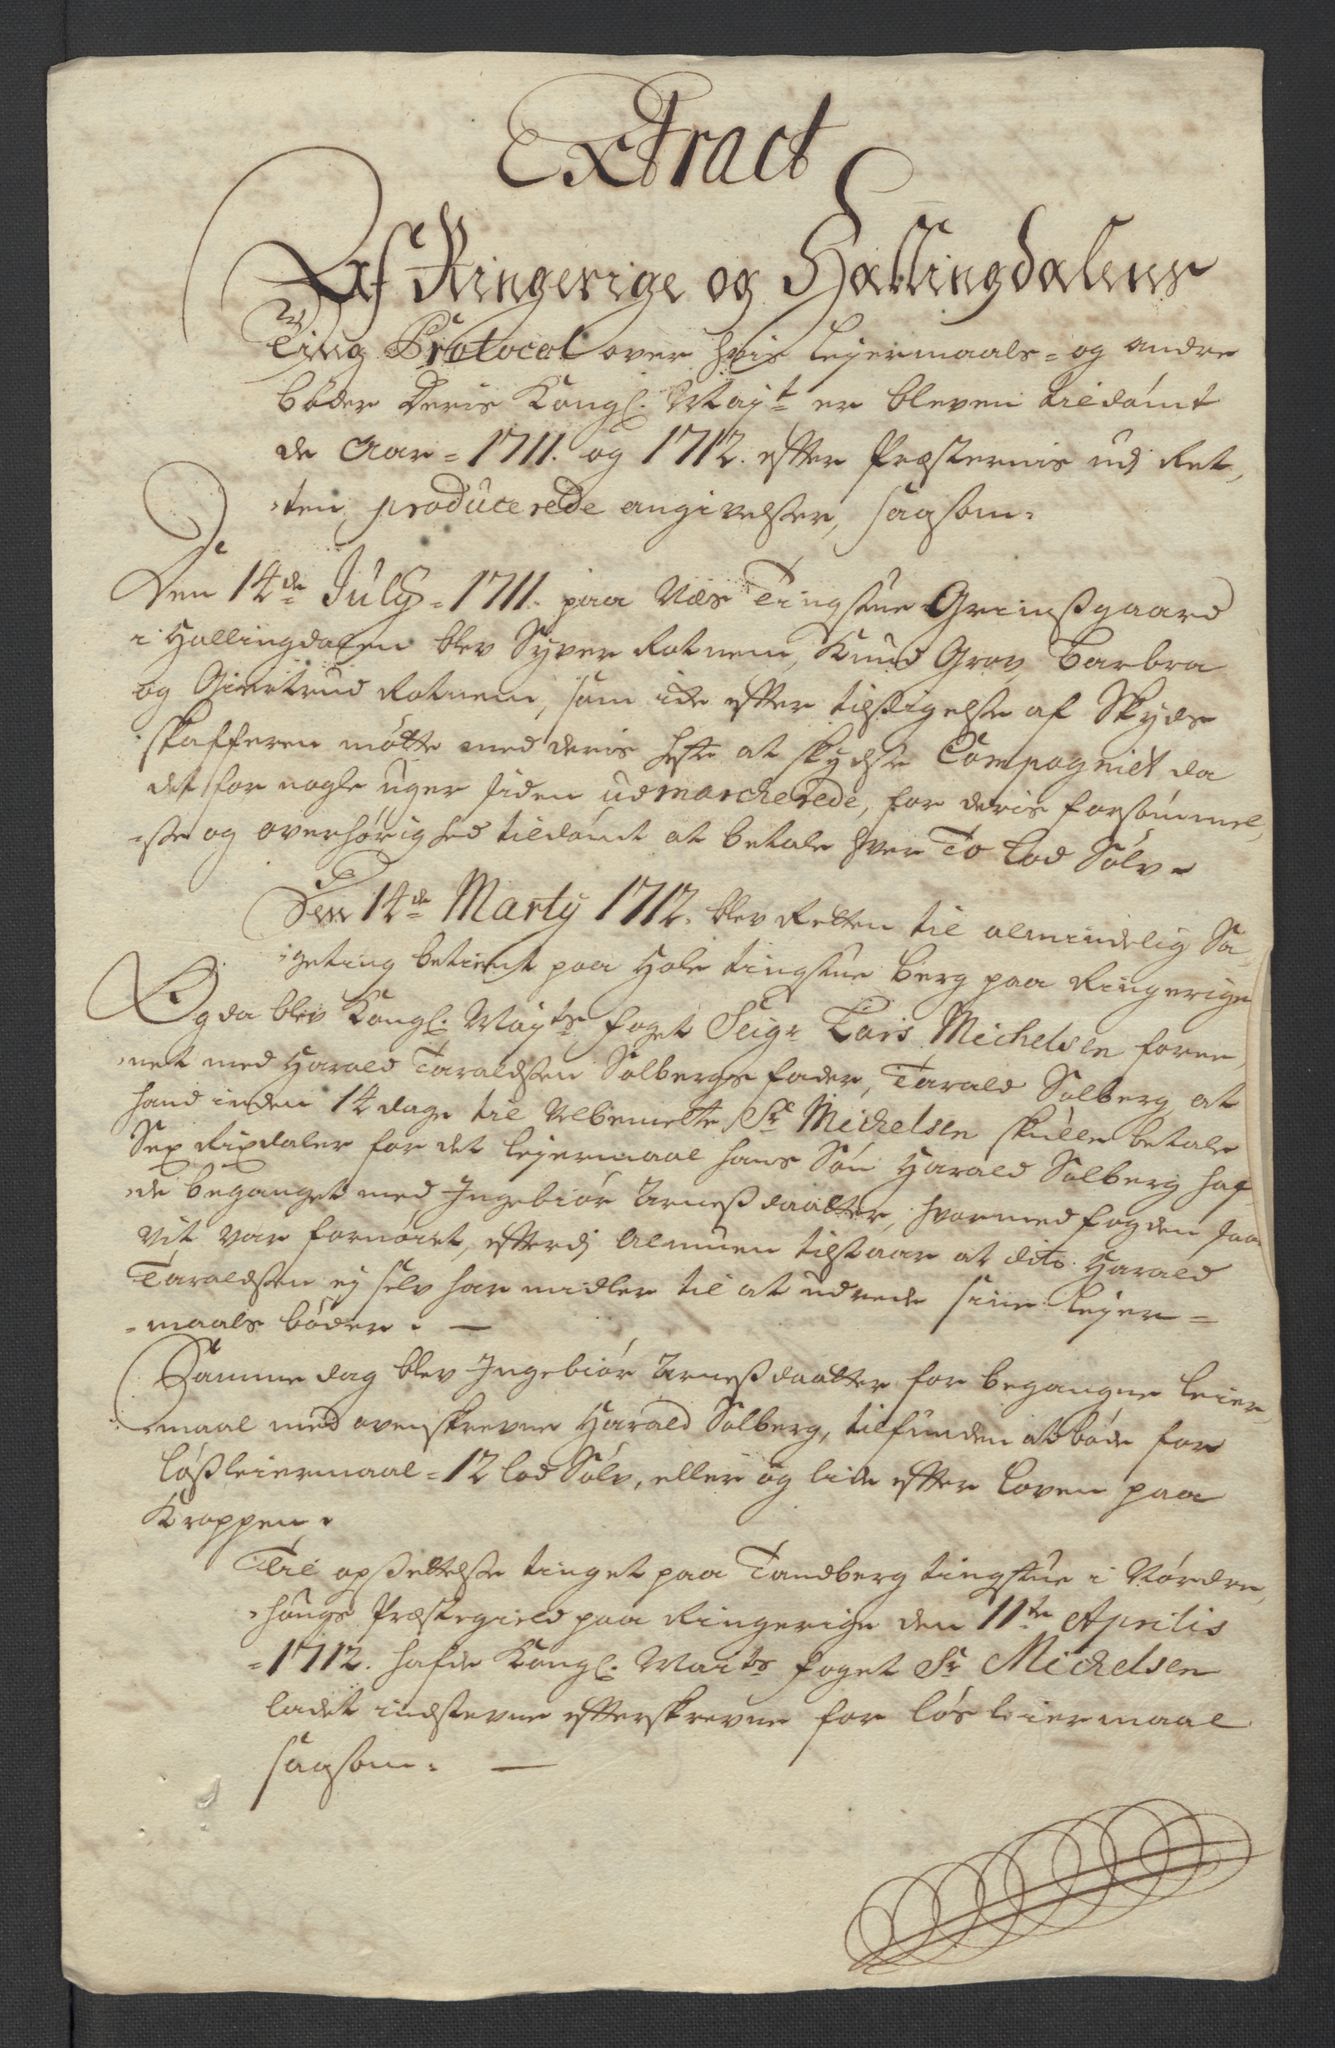 Extract
Af Ringerige og Hallingdalens
Ting Protocol over hvis Leyermaals- og andre
bøder Deris Kongl. Mayt er bleven tildømt
de Aar=1711. og 1712. efter Præsternis udj Ret,
=ten producerede angivelser, saasom.
Den 14de July=1711. paa Næs Tingstue Grimsgaard
i Hallingdalen blev Syver Rotnem, Knud Grov, Barbra
og Giertrud Rotnem, som icke efter tilsigelse af Skyds
skafferen møtte med deris heste at skydse Compagniet da
det for nogle uger siden udmarcherede, for deris forsømmel,
=se og overhørighed tildømt at betale hver To Lod Sølv=
Den 14de Marty 1712. blev Retten til almindelig Sa,
=geting betient paa Hole tingstue Berg paa Ringerige
Og da blev Kongl. Mayts foget Seigr Lars Michelsen foree,
=net med Harald Taraldsen Solbergs fader, Tarald Solberg, at
hand inden 14 dage til Velbemelte Sr Michelsen skulle betale
Sex Rixdaler for det leyermaal hans Søn Harald Solberg haf,
=de begaaget med Ingebiør Arnesdaatter, hvormed fogden saa
vit var fornøiet, efterdj Almuen tilstaar at dito Harald
Taraldsen ej selv har midler til at udrede sine leyer=
=maals bøder. —
Samme dag blev Ingebiør Arnesdaatter for begangne leier,
=maal med ovenskrevne Harald Solberg, tilfunden at bøde for
Løsleiermaal=12 lod Sølv, eller og lide efter Loven paa
Kroppen.
Til opsettelse tinget paa Tandberg tingstue i Nordre,
=houg Præstegield paa Ringerige den 11te Aprilis
=1712. hafde Kongl. Maits foget Sr Michelsen
ladet indstevne efterskrevne for løs leiermaal
saasom. —